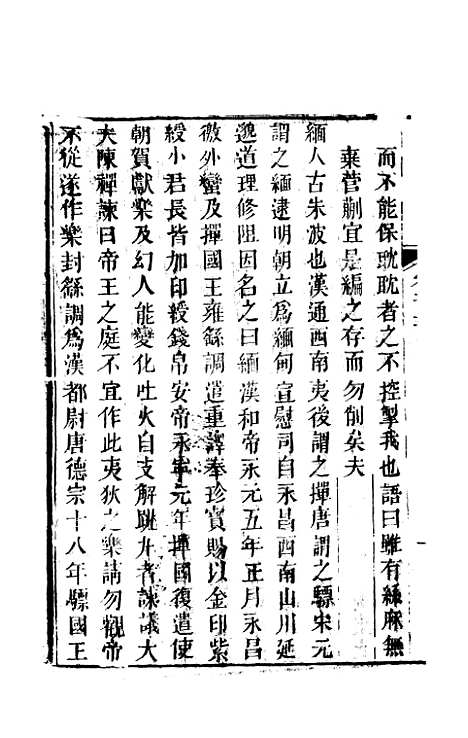 而不能保耽耽者之不控掣我也語曰雖有絲麻無
棄菅蒯宜是編之存而勿削矣夫
緬人古朱波也漢通西南夷後謂之撣唐謂之驃宋元
謂之緬逮明朝立為緬甸宣慰司自永昌西南山川延
邈道理修阻因名之曰緬漢和帝永元五年正月永昌
徼外蠻及撣國王雍繇調遣重譯奉珍寶賜以金印紫
綬小君長皆加印綬錢帛安帝永寧元年撣國復遣使
朝賀獻樂及幻人能變化吐火自支解跳丸者諫議大
夫陳禪諫曰帝王之庭不宜作此夷狄之樂請勿觀帝
不從遂作樂封繇調為漢都尉唐德宗十八年驃國王